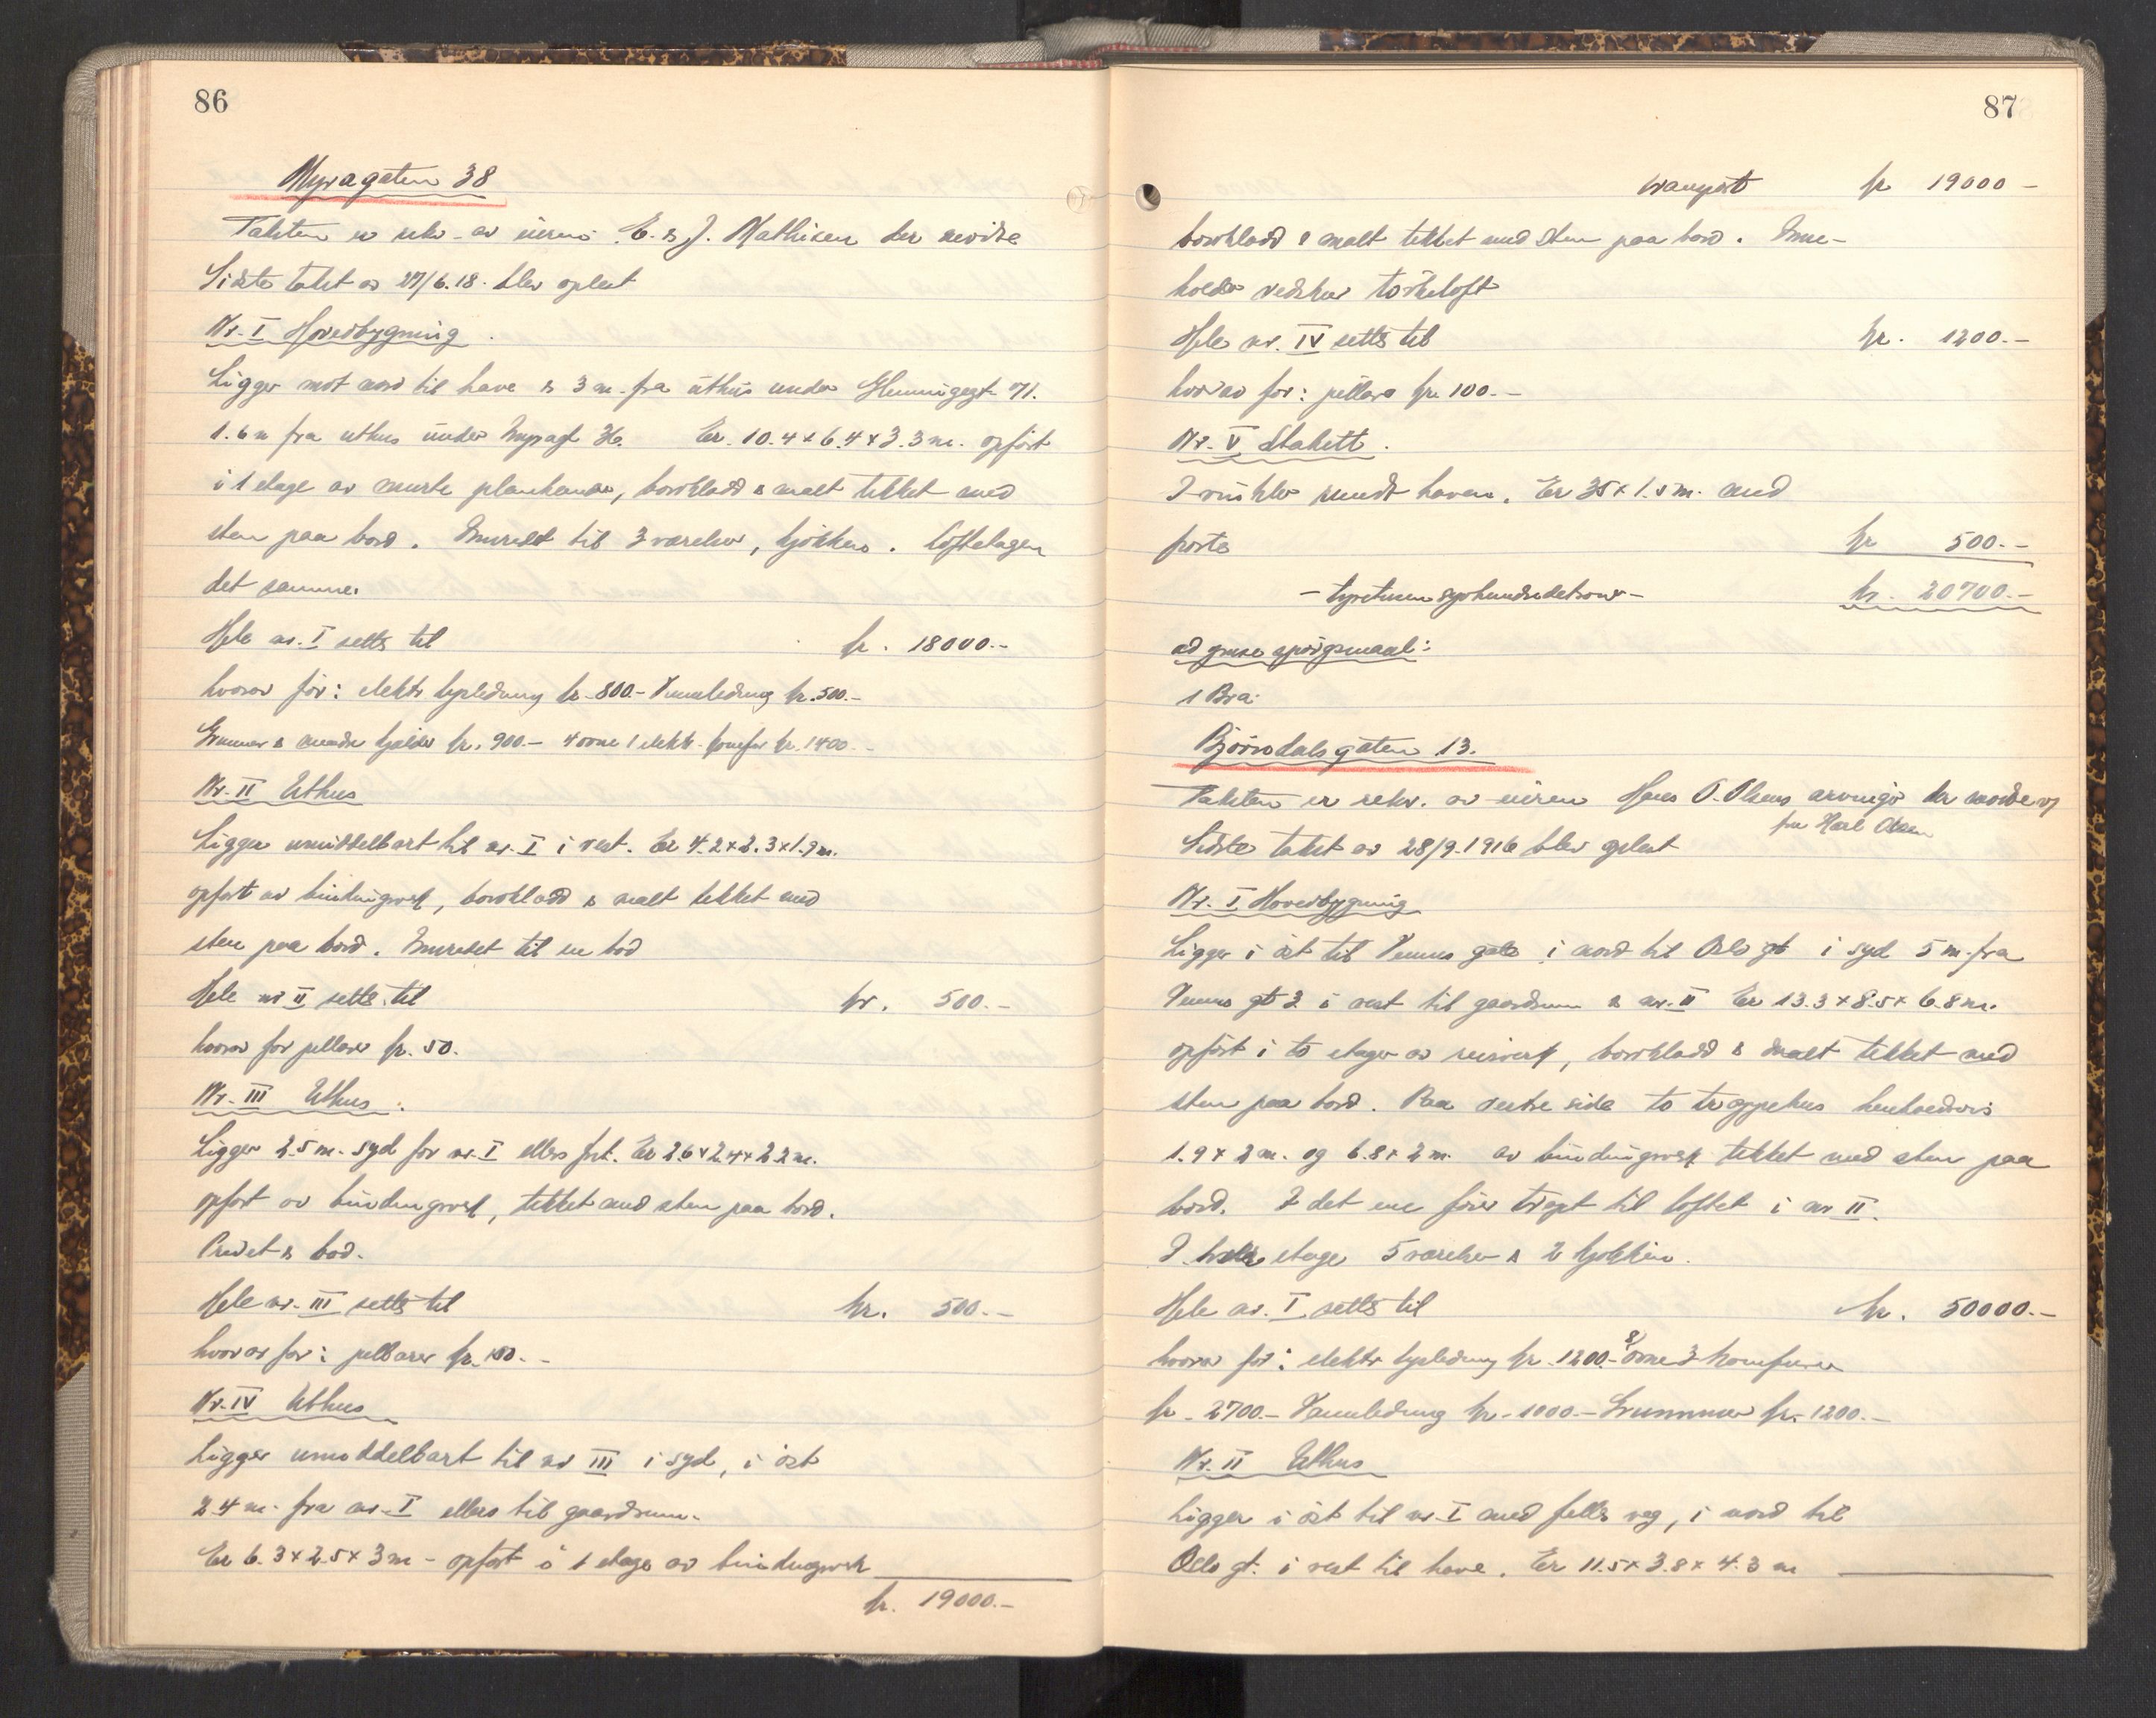 86
Myragaten 38
Taksten er rekv. av eieren E. & J. Mathisen der møtte
Sidste takst av 27/6.18. blev oplest
Nr. I Hovedbygning.
Ligger mot nord til have & 3 m. fra uthus under Glemmigegt 71.
1.6 m fra uthus under Myragt 36. Er 10.4 x 6.4 x 3.3 m. opført
i 1 etage av murte plankende, bordklædd & malt tekket med
sten paa bord. Innredet til 3 værelser, kjøkken. Loftetagen
det samme.
Hele nr. I settes til kr. 18000.-
hvorav for: elektr lysledning kr. 800.- Vannledning kr. 500.-
Grunnmur & mindre kjelder kr. 900.- 4 ovne 1 elektr. komfur kr. 1400.-
Nr. II Uthus
Ligger umiddelbart til nr. I i vest. Er 4.2 x 2.3 x 1.9 m.
opført av bindingsverk, bordklædd & malt tekket med
sten paa bord. Innredet til en bod
Hele nr II settes til kr. 500.-
hvorav for pillarer kr. 50.
Nr. III Uthus.
Ligger 2.5 m. syd for nr. I ellers frit. Er 2.6 x 2.4 x 2.2 m.
opført av bindingsverk, tekket med sten paa bord.
Privet & bod.
Hele nr. III settes til kr. 500.-
hvorav for: pillarer kr. 100.-
Nr. IV Uthus
Ligger umiddelbart til nr III i syd, i øst
2.4 m. fra nr. I ellers til gaardsrum.
Er 6.3 x 2.5 x 3 m - opført i 1 etage av bindingsverk
kr. 19000.-
87
transport kr 19000 -
bordklædd & malt tekket med sten paa bord. Inne-
holder vedskur tørkeloft
Hele nr. IV settes til kr. 1200.-
hvorav for: pillarer kr. 100.-
Nr. V Stakitt.
I vinkler rundt haven. Er 35 x 1.5 m. med
porter kr 500.-
- tyvetusensyvhundredekroner - kr. 20700.-
ad grense spørgsmaal:
1 Bra.
Bjørndalsgaten 13.
Taksten er rekv. av eieren Hans O. Olsens arvinger der møtte ved
fru Karl Olsen
Sidste takst av 28/9-1916 blev oplest
Nr. I Hovedbygning
Ligger i øst til Vennes gate i nord til Oslo gt i syd 5 m. fra
Vennes gt 2 i vest til gaardsrum & nr. II Er 13.3 x 8.5 x 6.8 m.
opført i to etager av reisverk, bordklædd & malt tekket med
sten paa bord. Paa vestre side to trappehus henholdsvis
1.9 x 2 m. og 6.8 x 2 m. av bindingsverk tekket med sten paa
bord. I det ene fører trapt til loftet i nr II.
I hver etage 5 værelser & 2 kjøkken.
Hele nr. I settes til kr. 50000.-
hvorav for: elektr lysledning kr. 1200.- 8 ovne 3 komfurer
kr. 2700.- Vannledning kr. 1000.- Grunnmur kr. 1200.-
Nr. II Uthus
Ligger i øst til nr. I med felles veg, i nord til
Oslo gt. i vest til have. Er 11.5 x 3.8 x 4.3 m